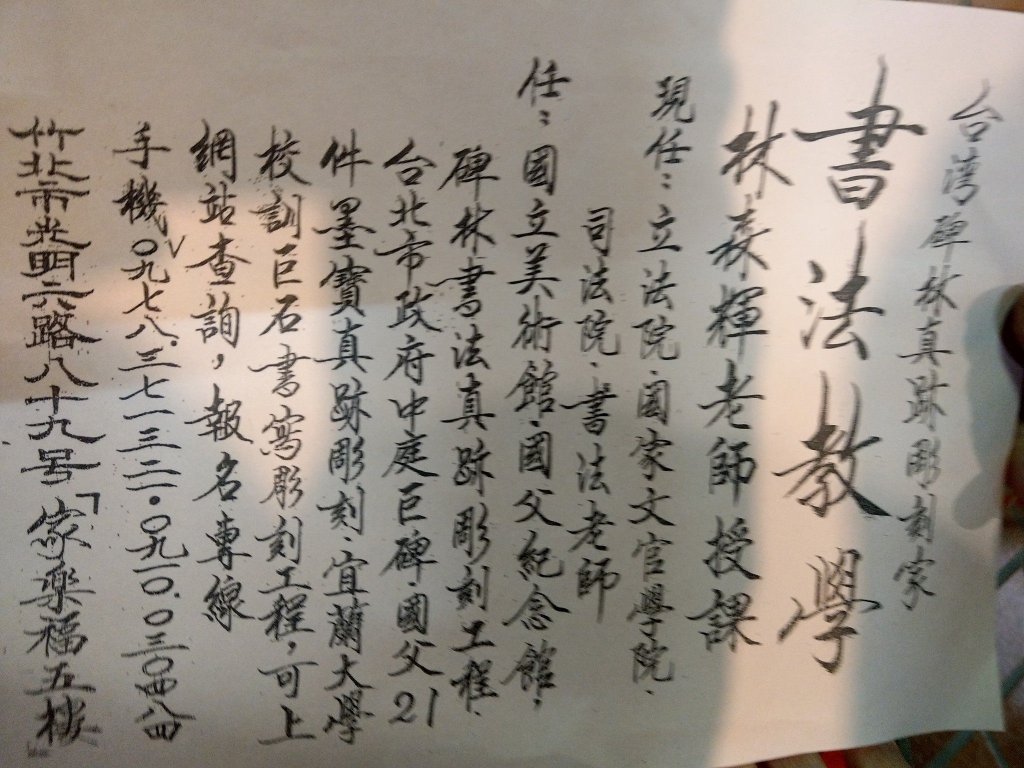 台湾碑林真跡彫刻家
書法教學
林森輝老師授課
現任：立法院·國家文官學院·
司法院·書法老師
任：國立美術館·國父紀念館·
碑林書法真跡彫刻工程·
台北市政府中庭巨碑國父21
件墨寶真跡彫刻·宜蘭大學
校訓巨石書寫彫刻工程，可上
網站查詢，報名專線
手機〇九七八·三七一三二一·〇九一〇·〇三〇四八四
竹北市光明六路八十九号「家樂福五樓